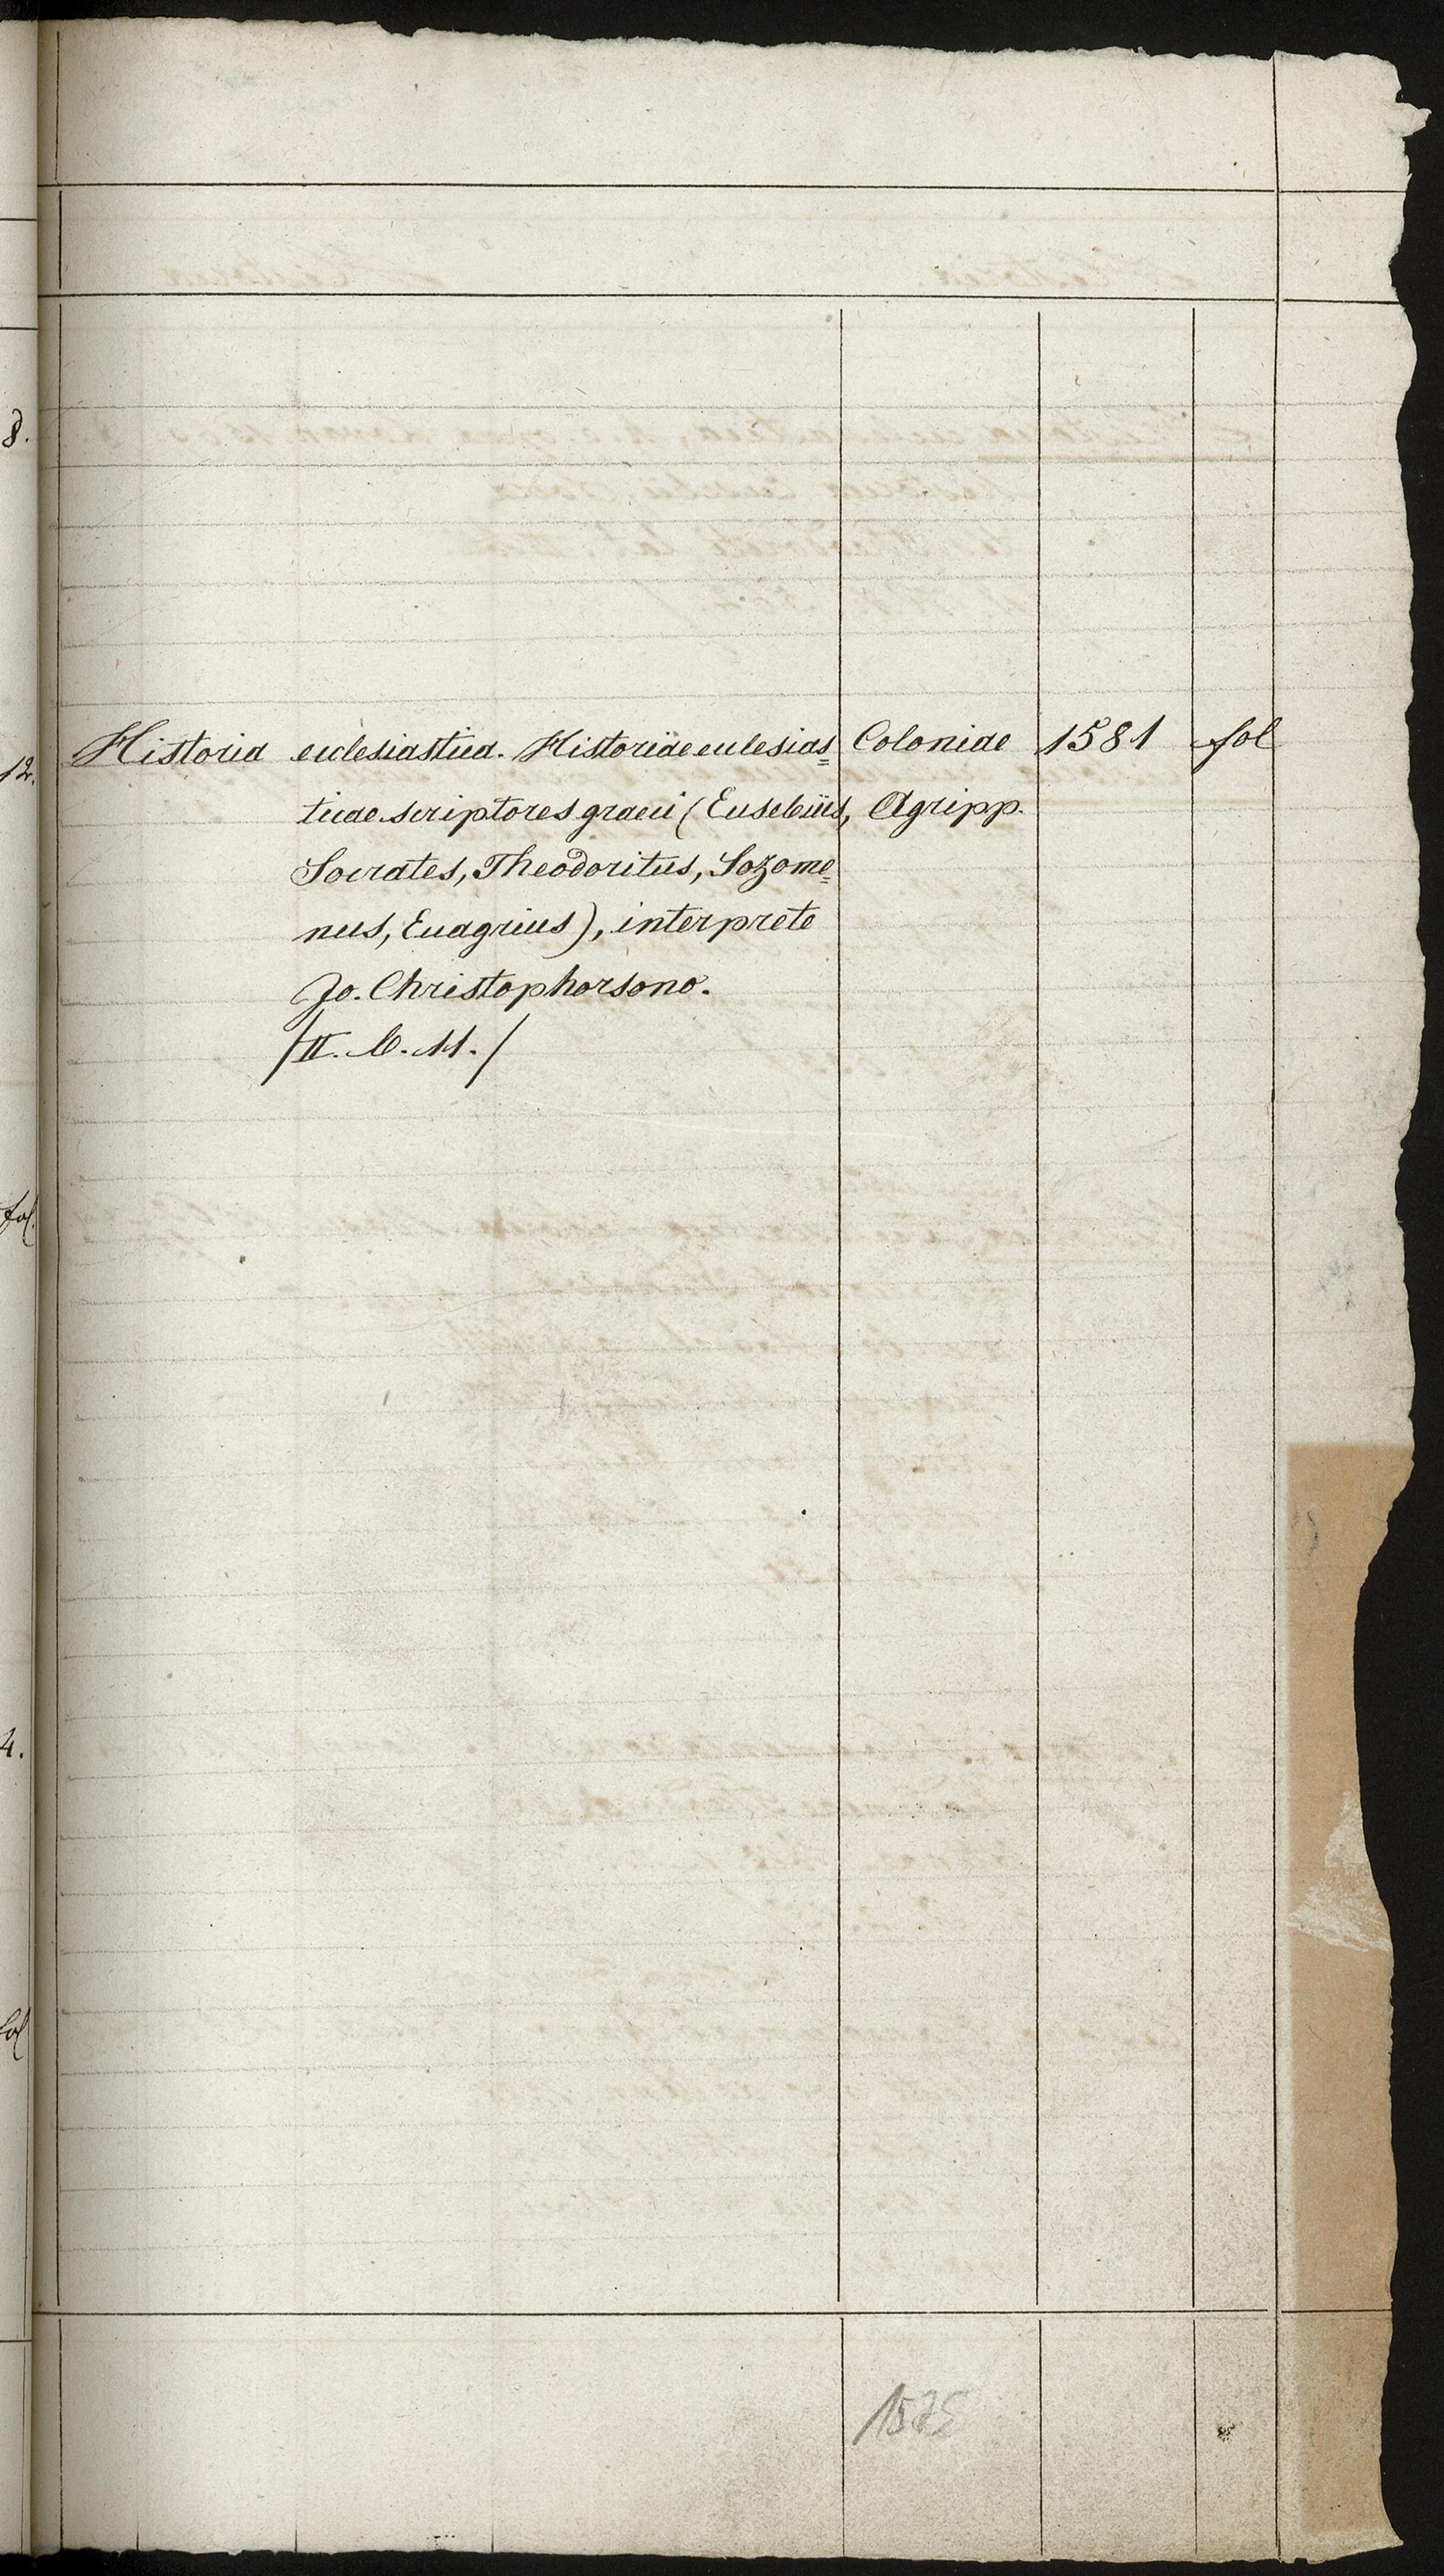 8.
12.
Historia ecclesiastica. Historiae ecclesias= Coloniae 1581 fol
ticae scriptores graeci (Eusebius, Agripp.
Socrates, Theodoritus, Sozome=
nus, Euagrius), interprete
Jo. Christophorsono.
/II. C. 11./
fol.
4.
fol